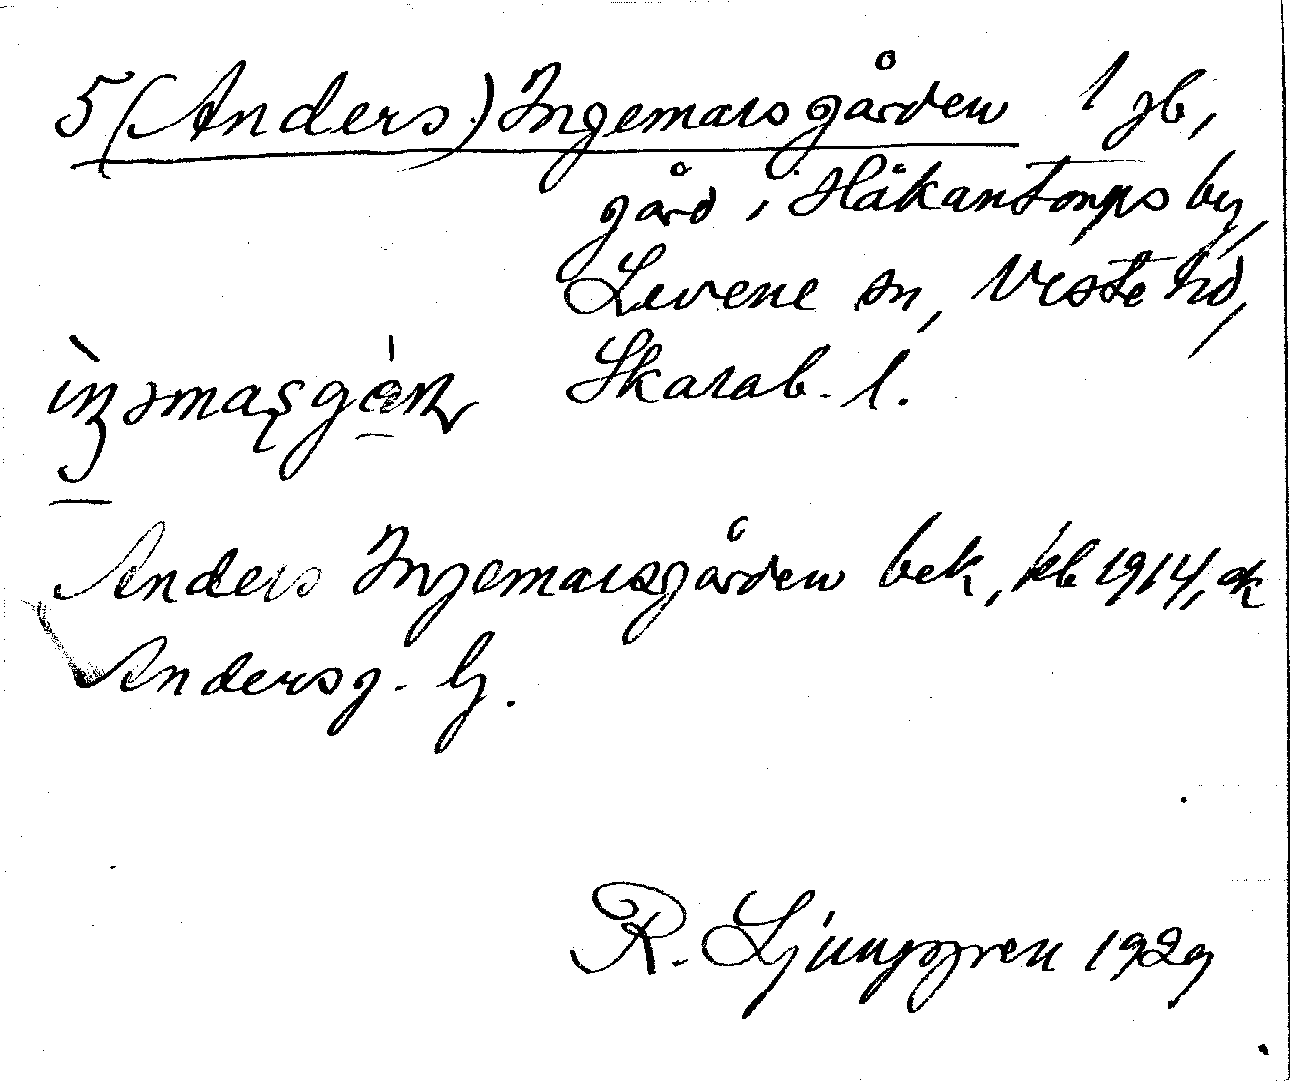 5 (Anders) Ingemarsgården 1 jb,
gård i Håkantorps by,
Levene sn, Viste hd,
Skarab. l.
Anders Ingemarsgården bek, kb 1914, ok
Andersg. Ly.
R. Ljunggren 1929